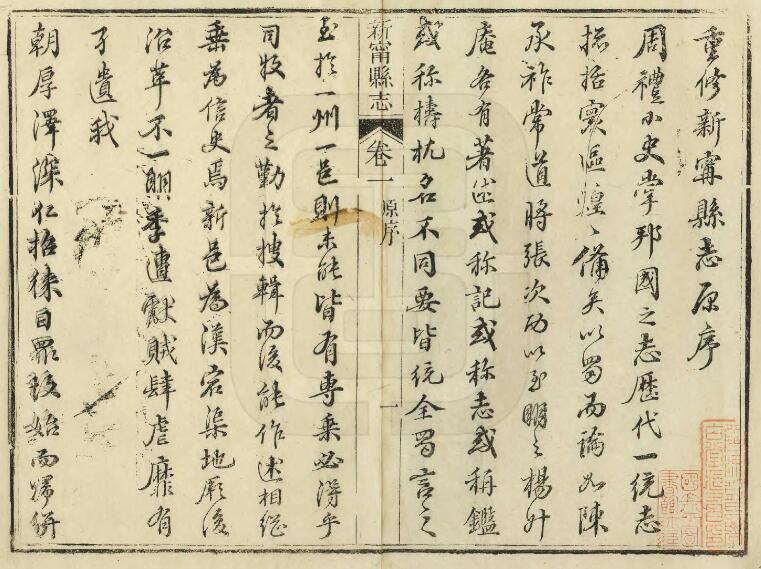 重修新甯縣志原序
周禮小史掌邦國之志歷代一統志
括寰區煌〻備矣以蜀而論如陳
承祚常道將張次功以至明之楊升
庵各有著述或称記或称志或称鑑
或称檮杌名不同要皆統全蜀言之
新甯縣志
卷一
原序
一
至於一州一邑則未能皆有專乘必得乎
司牧者之勤於搜輯而後能作述相繼
垂為信史焉新邑為漢宕渠地厥後
沿革不一明季遭獻賊肆虐靡有
孑遺我
朝厚澤深仁招徠自墾始而歸併